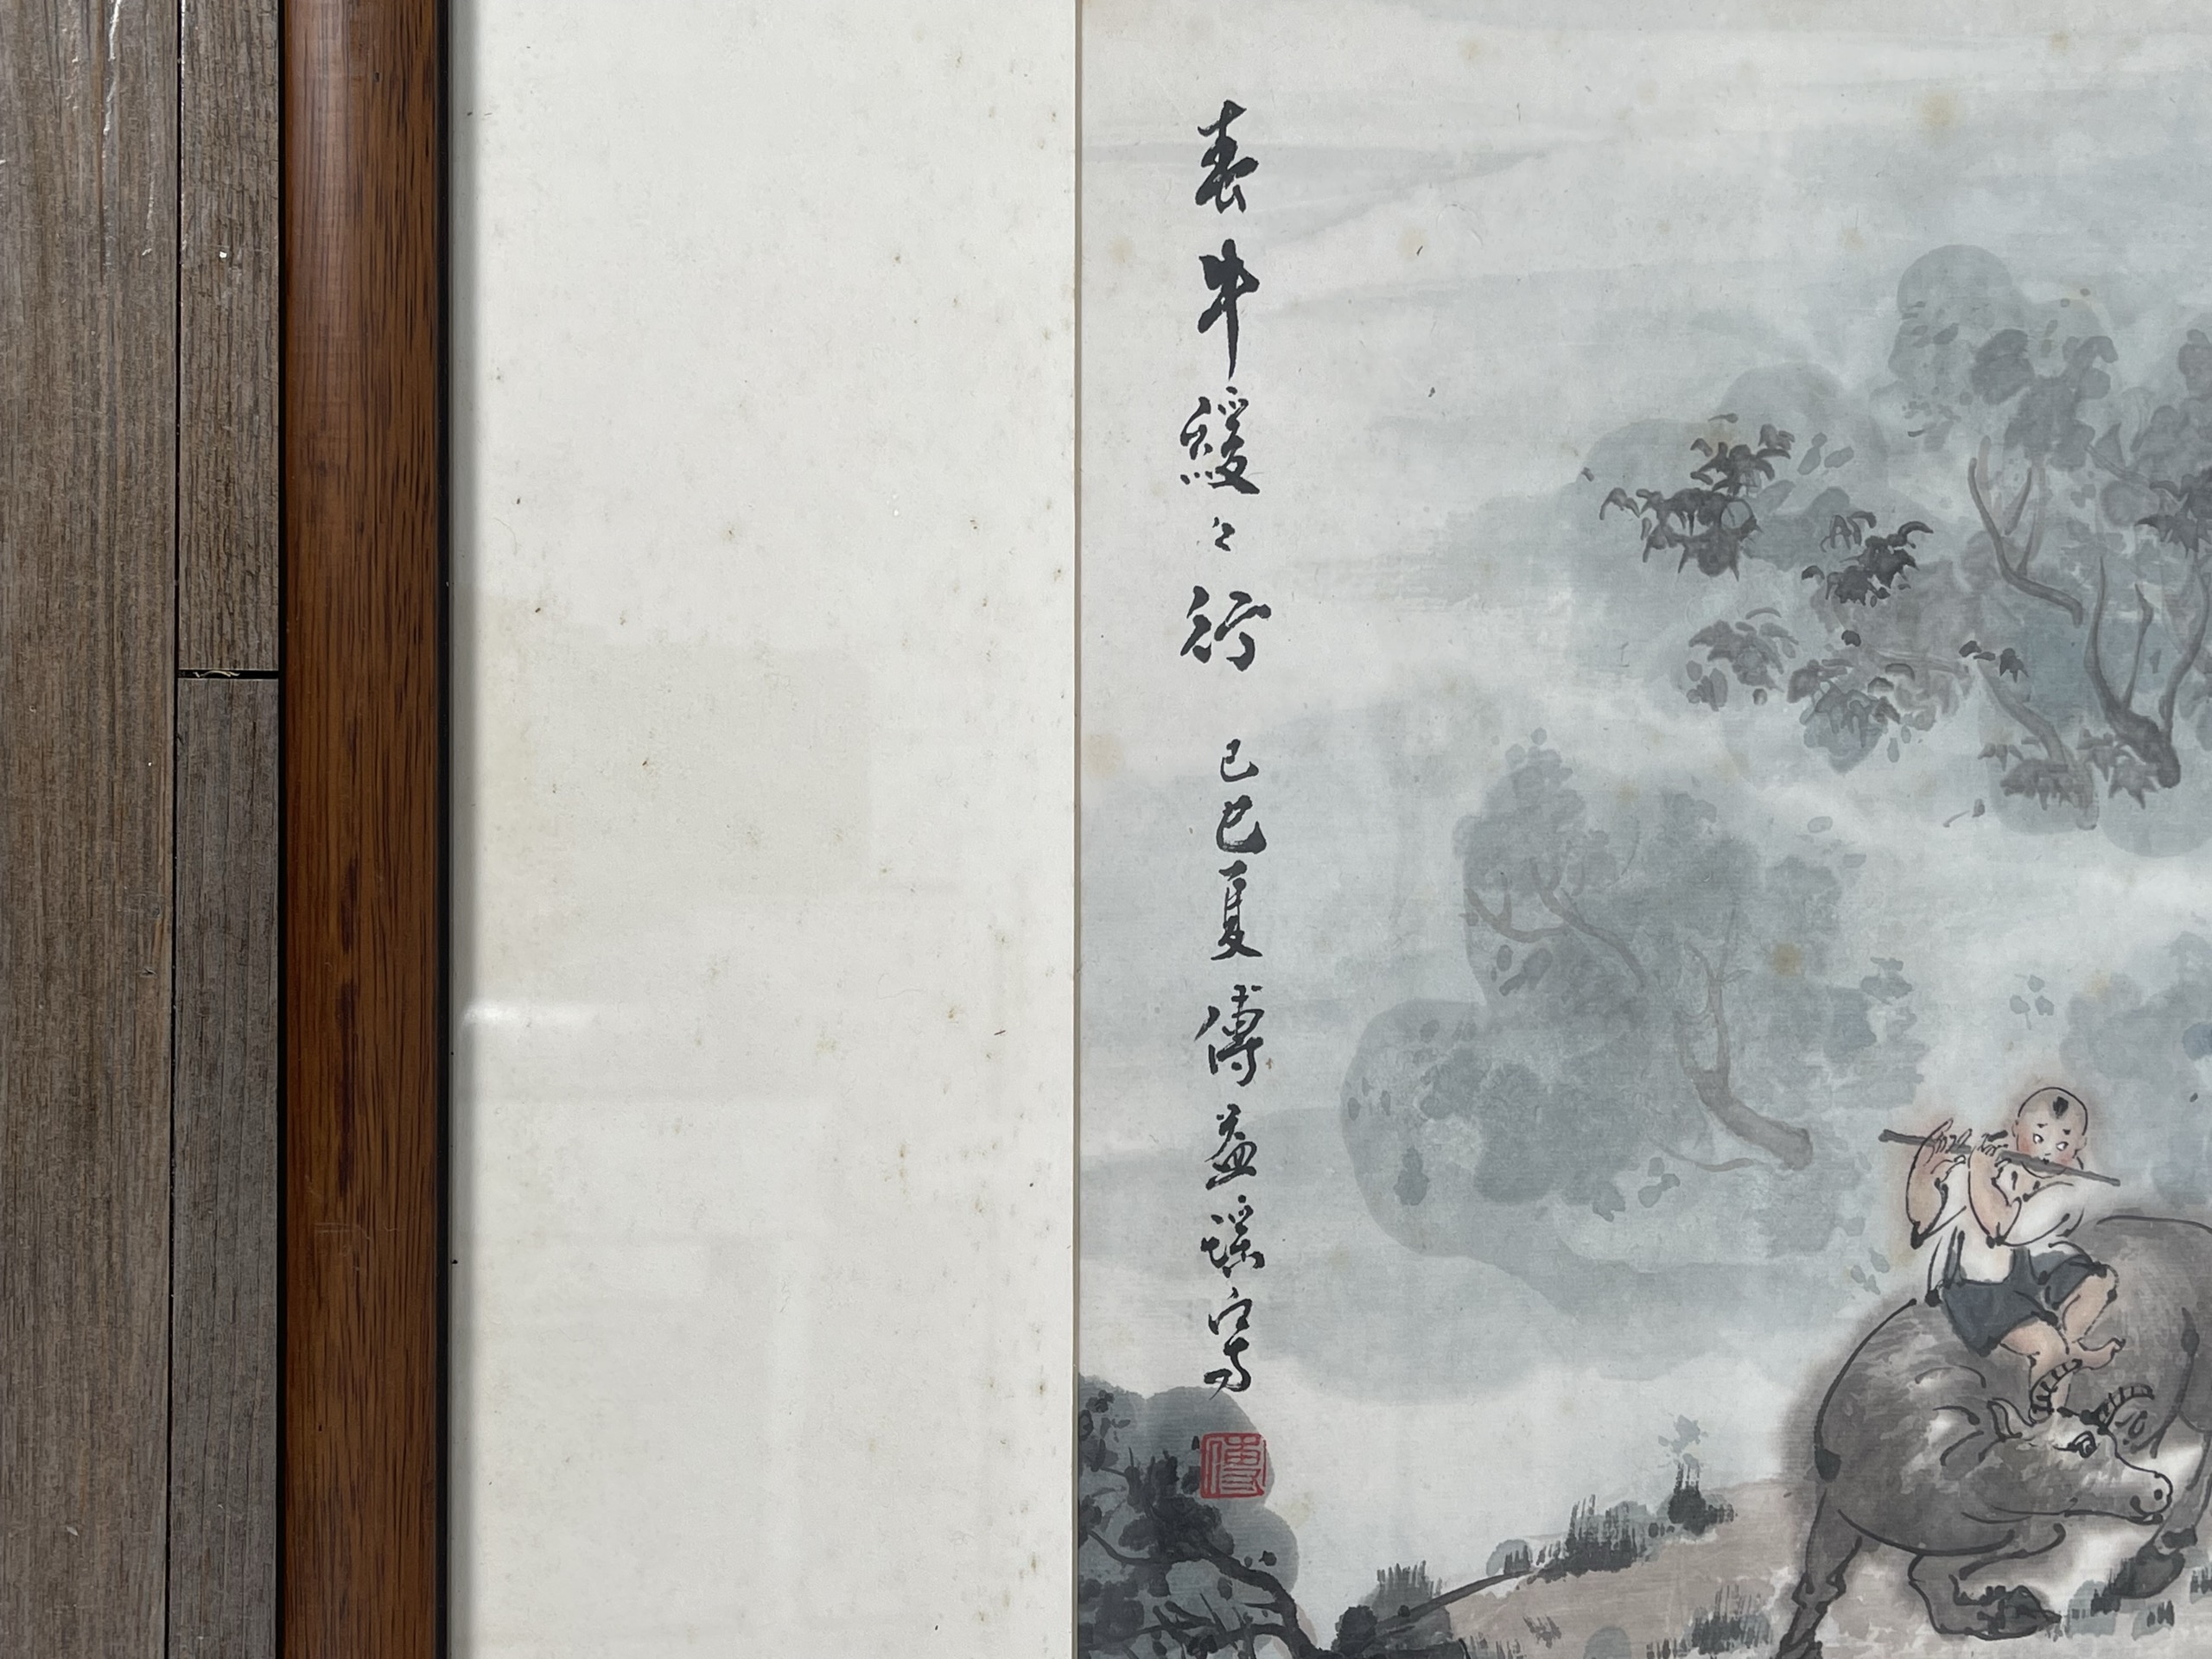 春牛緩々行 己巳夏 傅益瑤寫
傅